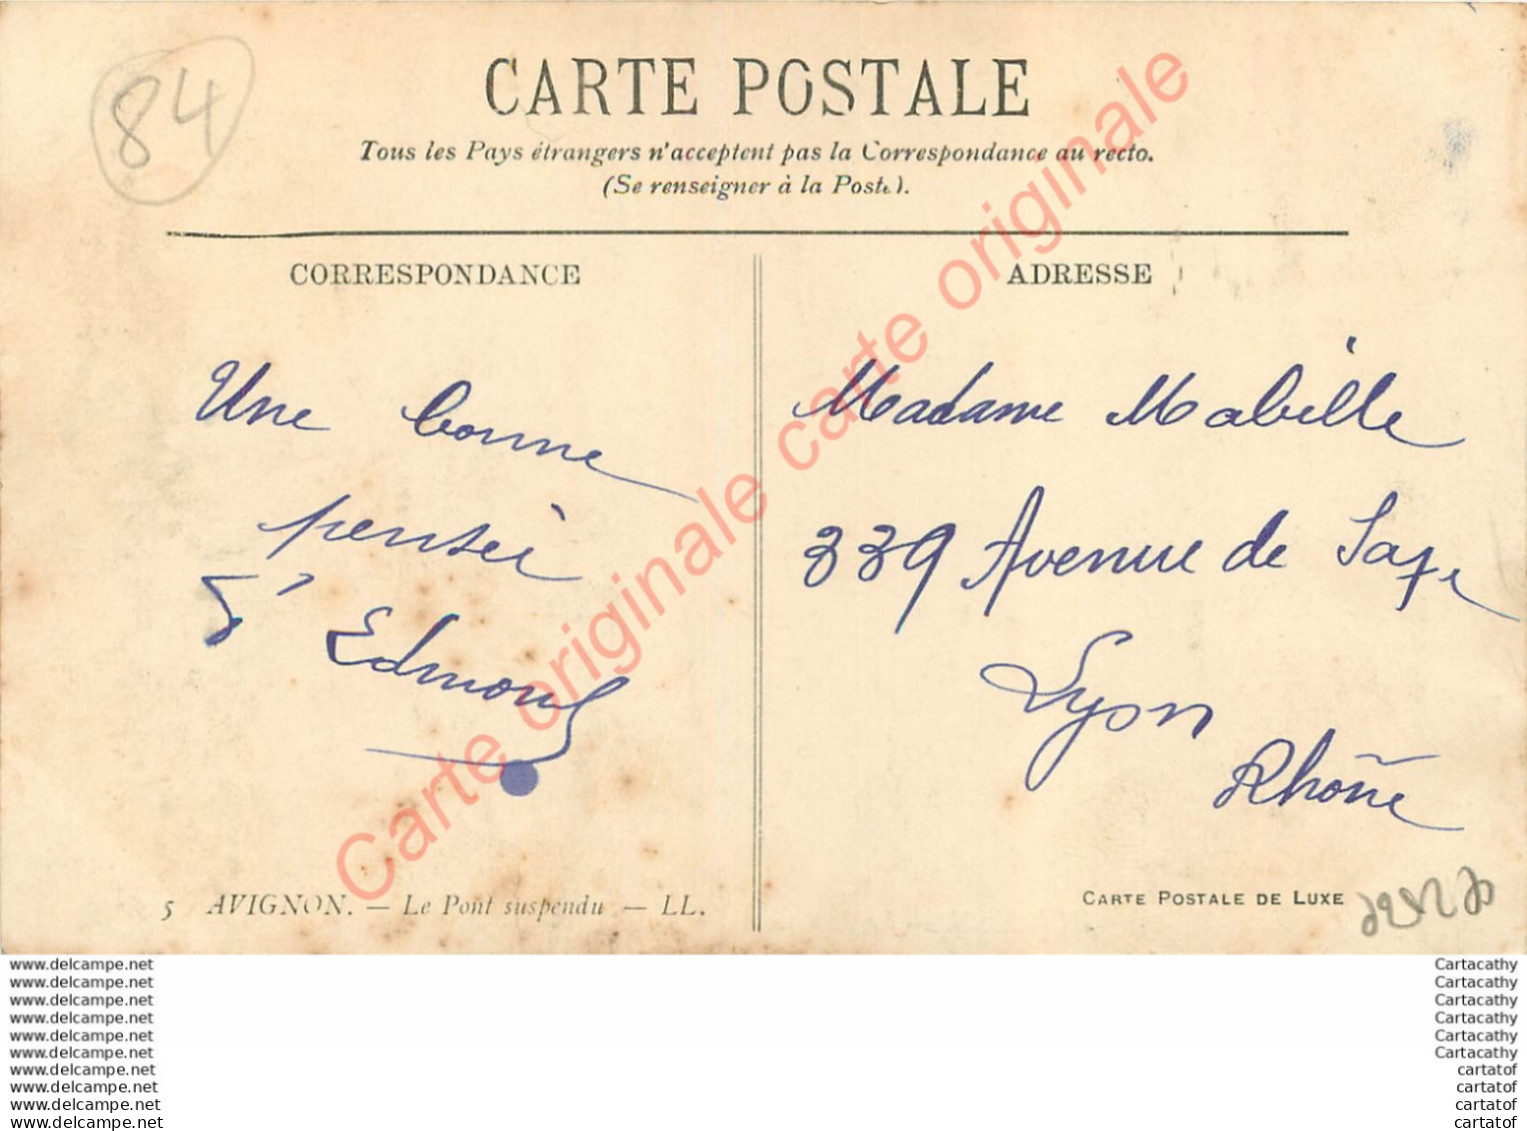 84
CARTE POSTALE
Tous les Pays étrangers n'acceptent pas la Correspondance au recto.
(Se renseigner à la Poste).
CORRESPONDANCE
Une bonne
pensée
Edmond
5 AVIGNON. — Le Pont suspendu — LL.
ADRESSE
Madame Mabille
339 Avenue de Saxe
Lyon
Rhône
CARTE POSTALE DE LUXE
Carte originale carte originale
Carte originale
www.delcampe.net
www.delcampe.net
www.delcampe.net
www.delcampe.net
www.delcampe.net
www.delcampe.net
www.delcampe.net
www.delcampe.net
www.delcampe.net
www.delcampe.net
Cartacathy
Cartacathy
Cartacathy
Cartacathy
Cartacathy
Cartacathy
cartatof
cartatof
cartatof
cartatof